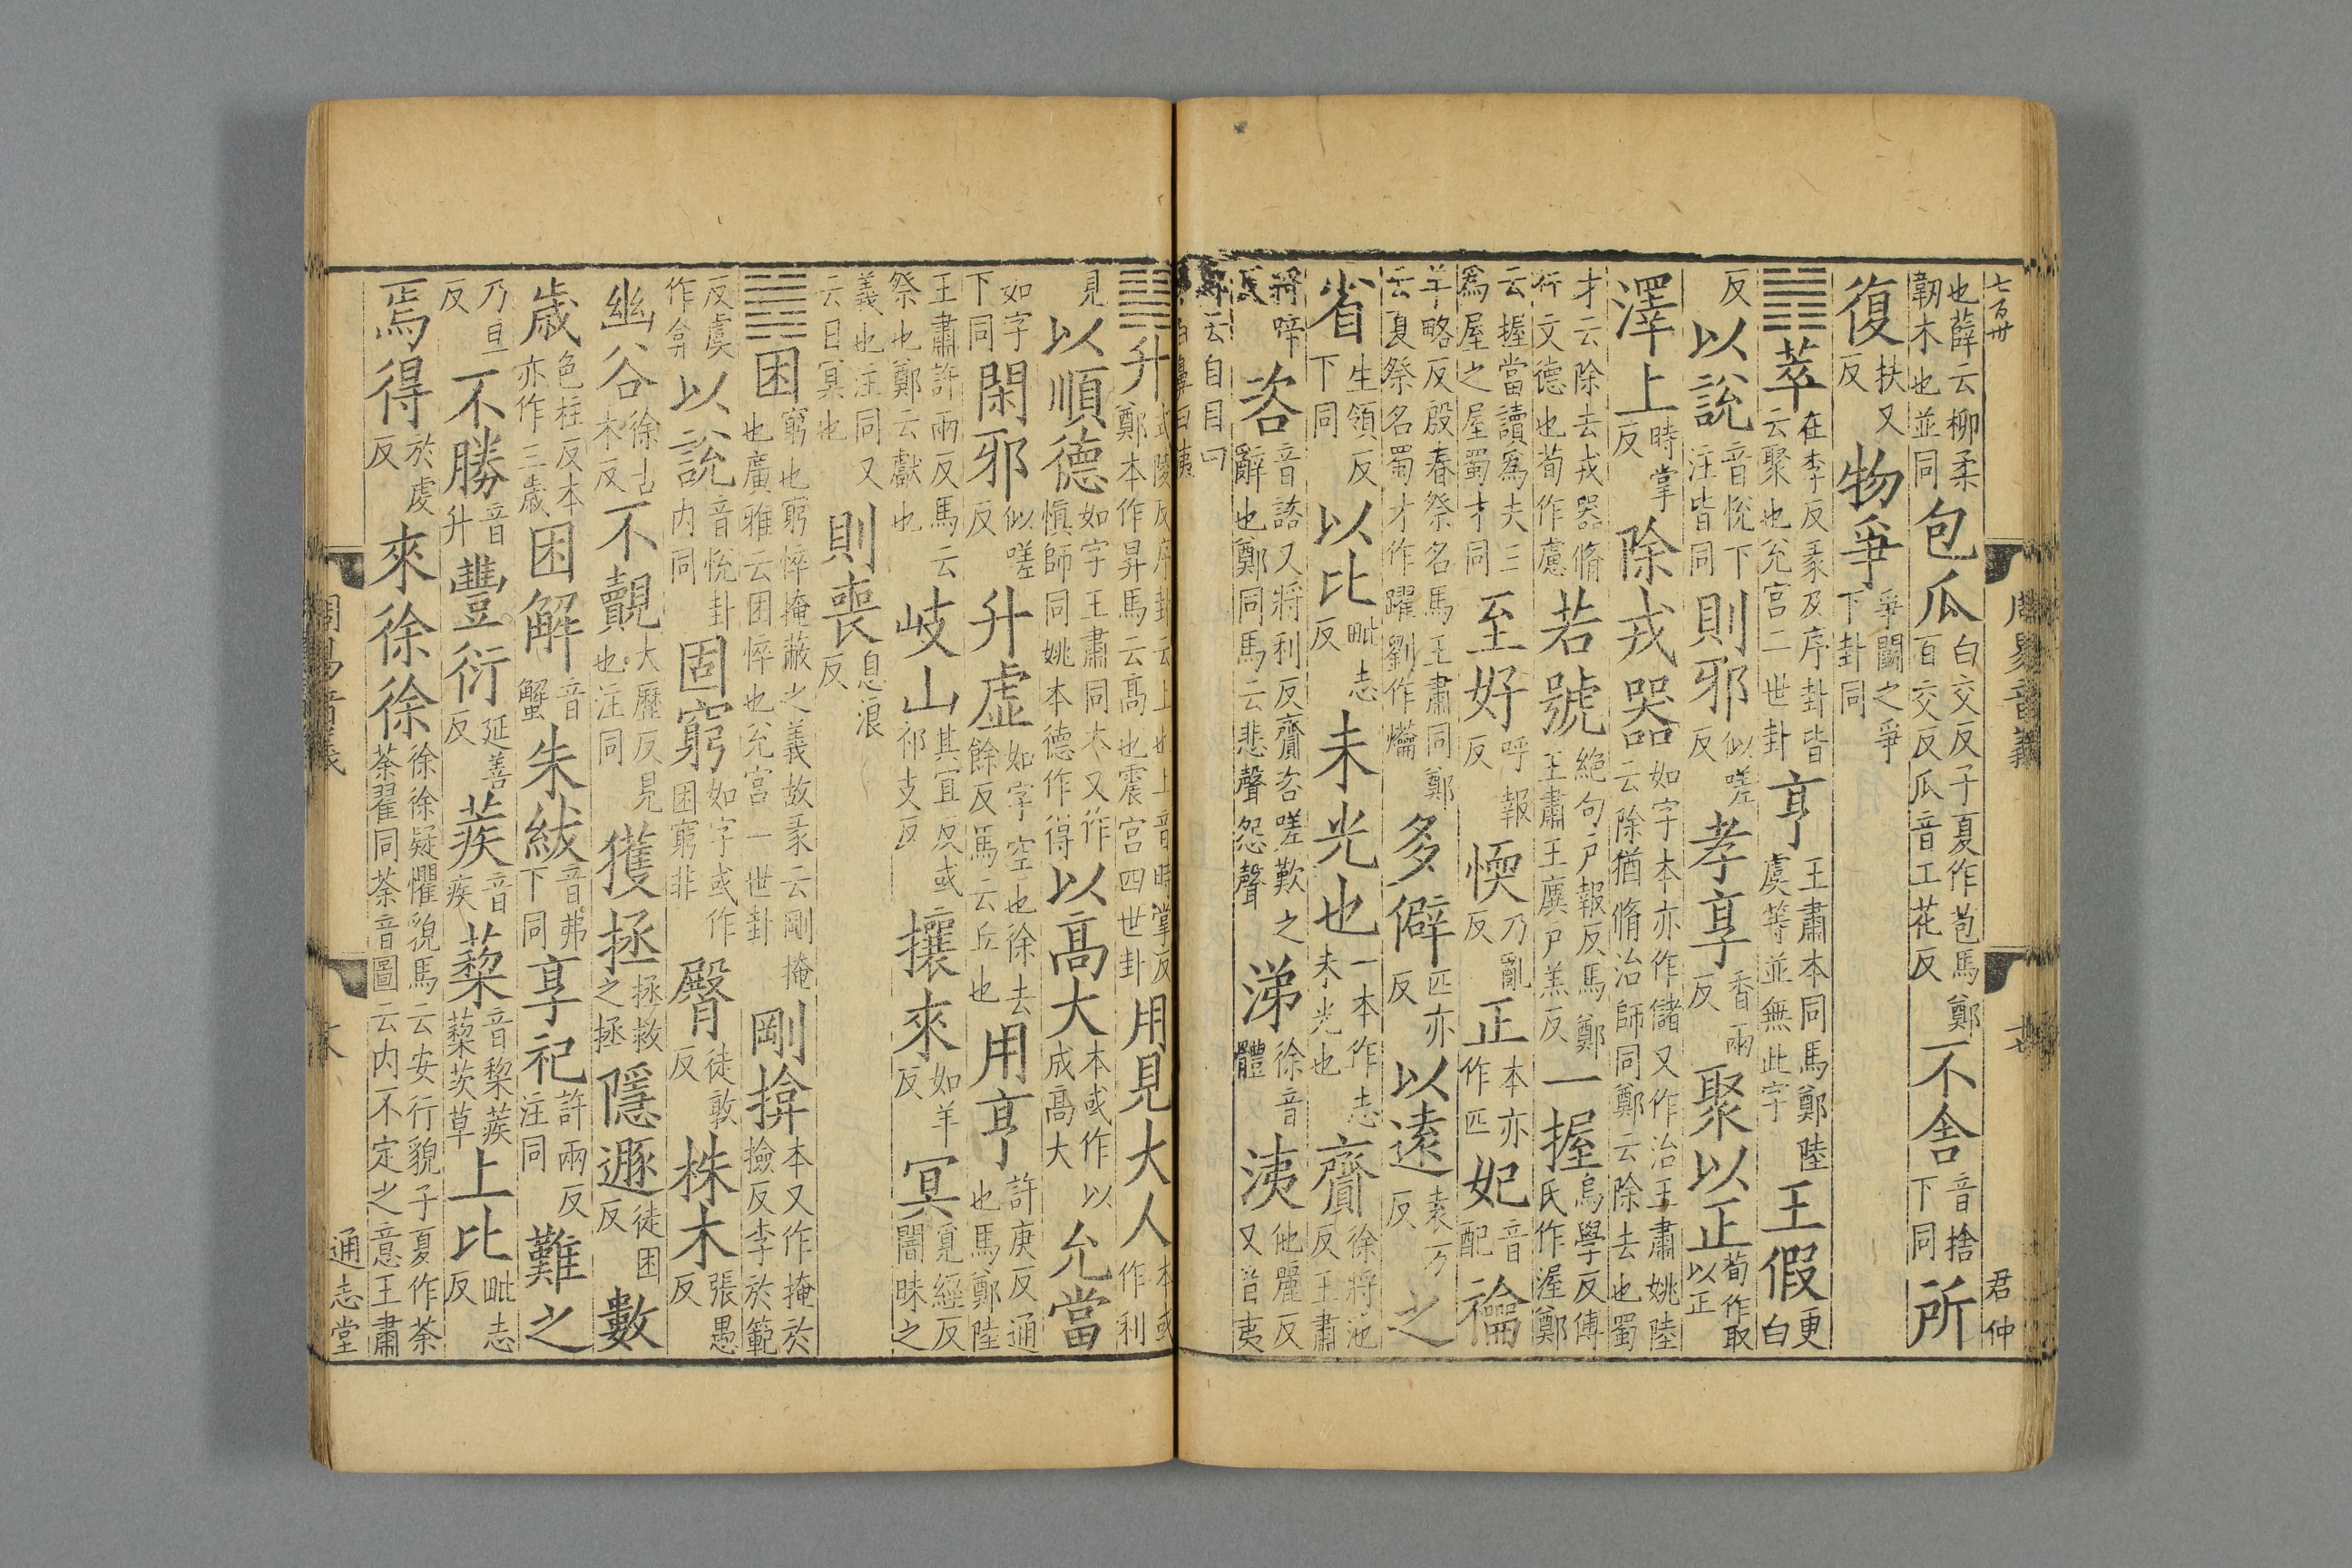 七百卅
君仲
周易音義
也薛云柳柔韌木也並同包瓜白交反子夏作苞馬鄭百交反瓜音工花反不舍音捨下同所
復扶又反物爭爭鬬之爭下卦同
䷬萃在季反彖及序卦皆云聚也兌宮二世卦亨王肅本同馬鄭陸虞等並無此字王假更白
反以說音悅下注皆同則邪似嗟反孝享香兩反聚以正荀作取以正
澤上時掌反除戎器如字本亦作儲又作治王肅姚陸云除猶脩治師同鄭云除去也蜀
才云除去戎器脩行文德也荀作慮若號絕句戶報反馬鄭王肅王廙戶羔反一握烏學反傅氏作渥鄭
云握當讀爲夫三爲屋之屋蜀才同至好呼報反愞乃亂反正本亦作匹妃音配禴
羊略反殷春祭名馬王肅同鄭云夏祭名蜀才作躍劉作爚多僻匹亦反以遠袁万反之
省生領反下同以比毗志反未光也一本作志未光也齎徐將池反王肅
將啼反咨音諮又將利反齎咨嗟歎之辭也鄭同馬云悲聲怨聲涕徐音體洟他麗反又音夷
鄭云自目曰自鼻曰洟
䷭升式陵反序卦云上也上音時掌反鄭本作昇馬云高也震宮四世卦用見大人本或作利
見以順德如字王肅同本又作愼師同姚本德作得以高大本或作以成高大允當
如字下同閑邪似嗟反升虛如字空也徐去餘反馬云丘也用亨許庚反通也馬鄭陸
王肅許兩反馬云祭也鄭云獻也岐山其宜反或祁支反攘來如羊反冥覓經反闇昧之
義也注同又云日冥也則喪息浪反
䷮困窮也窮悴掩蔽之義故彖云剛掩也廣雅云困悴也兌宮一世卦剛揜本又作掩於撿反李於範
反虞作弇以說音悅卦內同固窮如字或作困窮非臀徒敦反株木張愚反
幽谷徐古木反不覿大歷反見也注同獲拯拯救之拯隱遯徒困反數
歲色柱反本亦作三歲困解音蟹朱紱音弗下同享祀許兩反注同難之
乃旦反不勝音升豐衍延善反蒺音疾蔾音棃蒺蔾茨草上比毗志反
焉得於虔反來徐徐徐徐疑懼貌馬云安行貌子夏作荼荼翟同荼音圖云內不定之意王肅
周易音義
通志堂